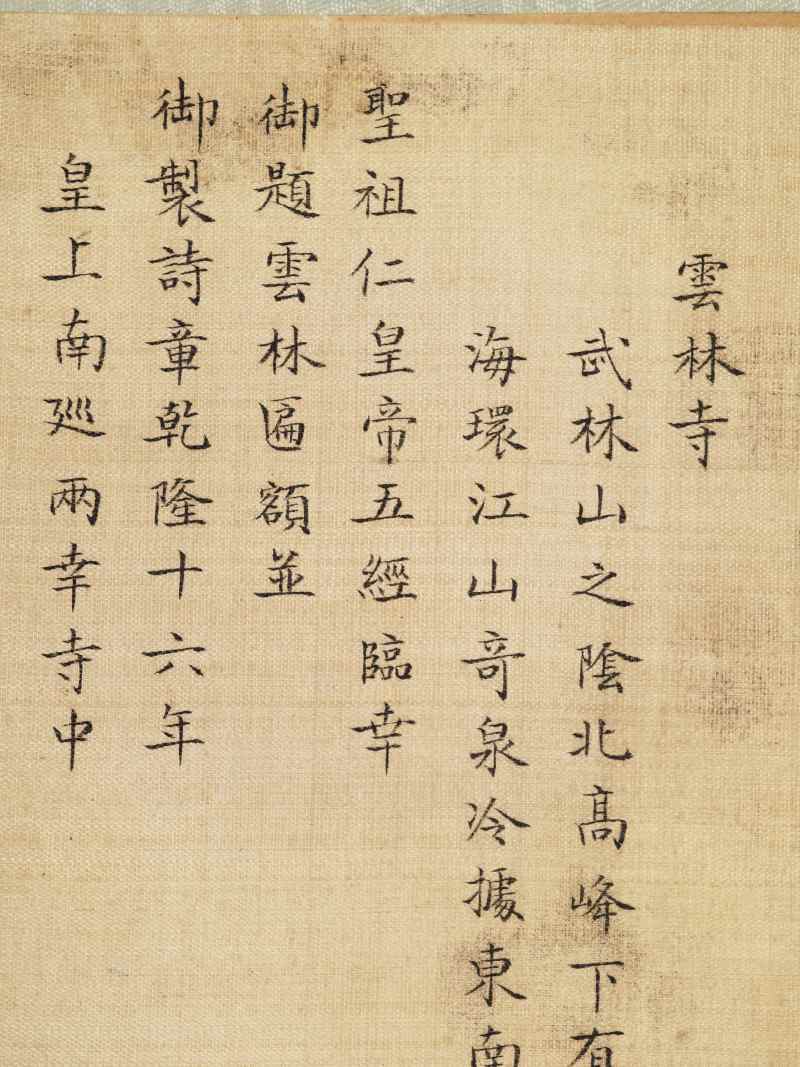 雲林寺
武林山之陰北高峰下有
海環江山竒泉冷據東南
聖祖仁皇帝五經臨幸
御題雲林匾額並
御製詩章乾隆十六年
皇上南廵兩幸寺中